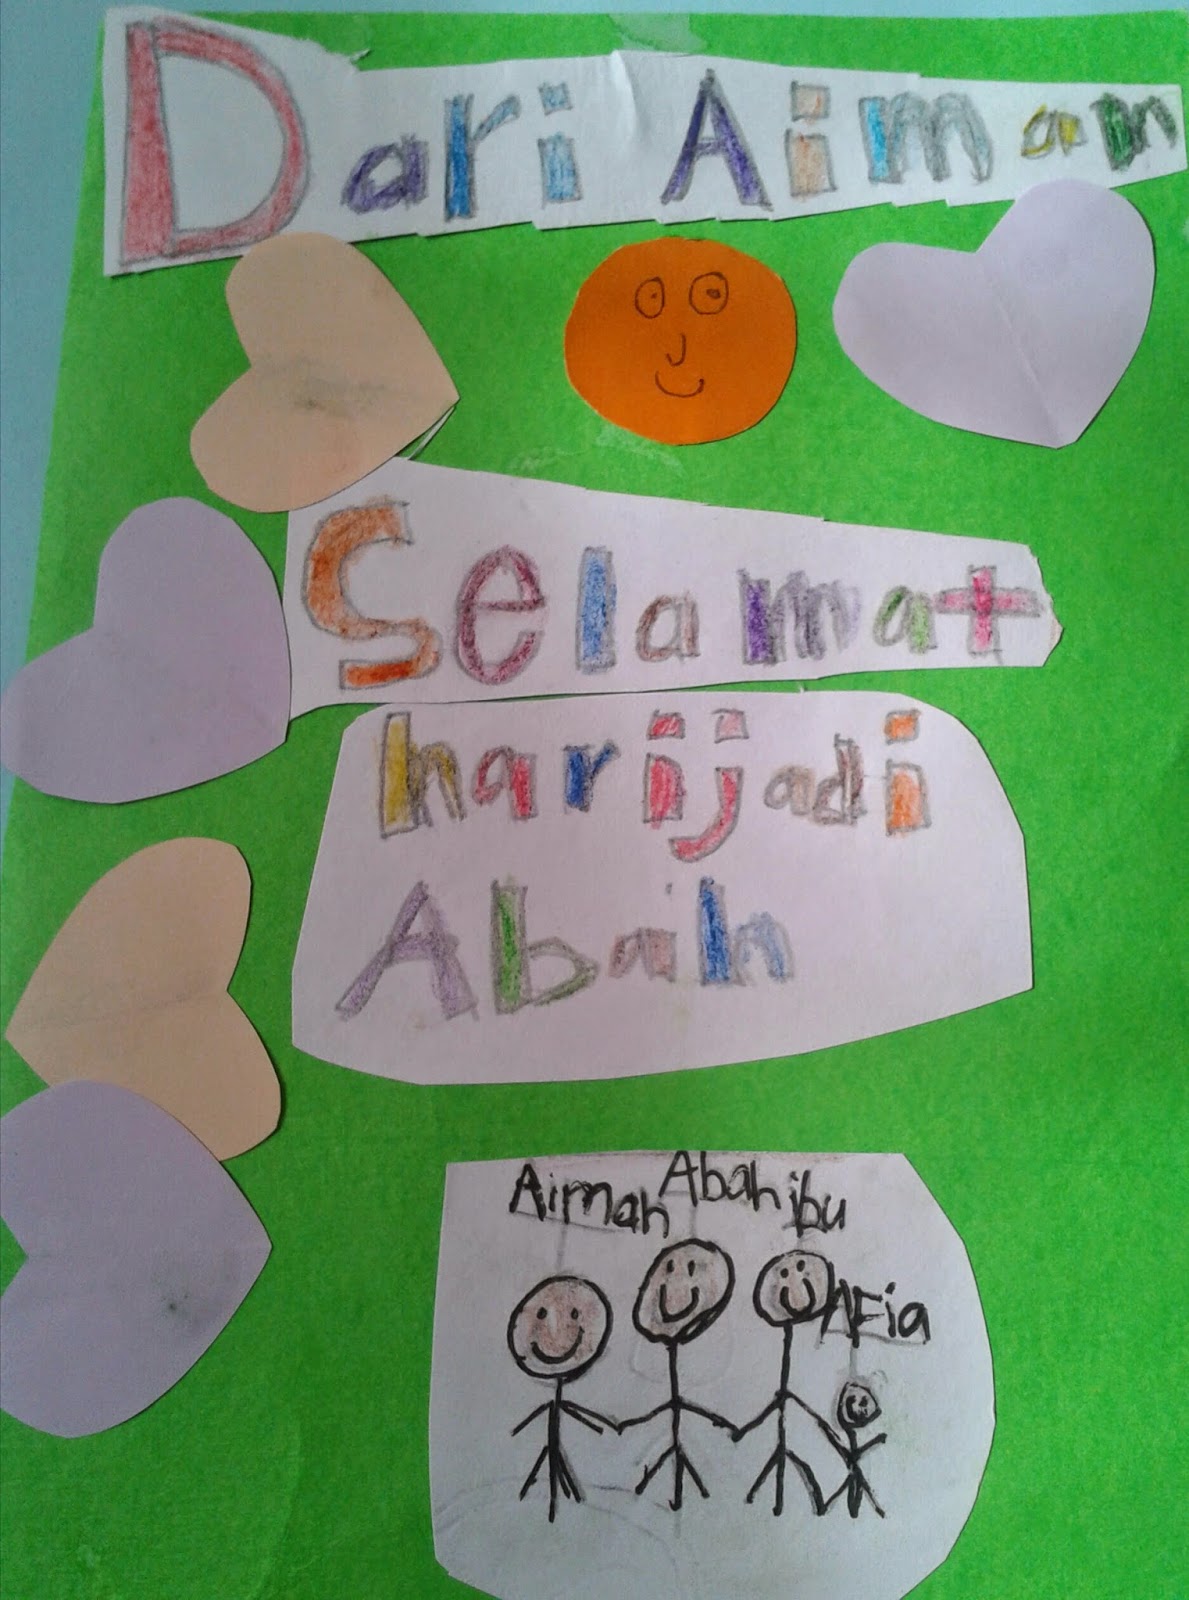 Dari Aiman
Selamat
harijadi
Abah
Aiman Abah ibu
AFia